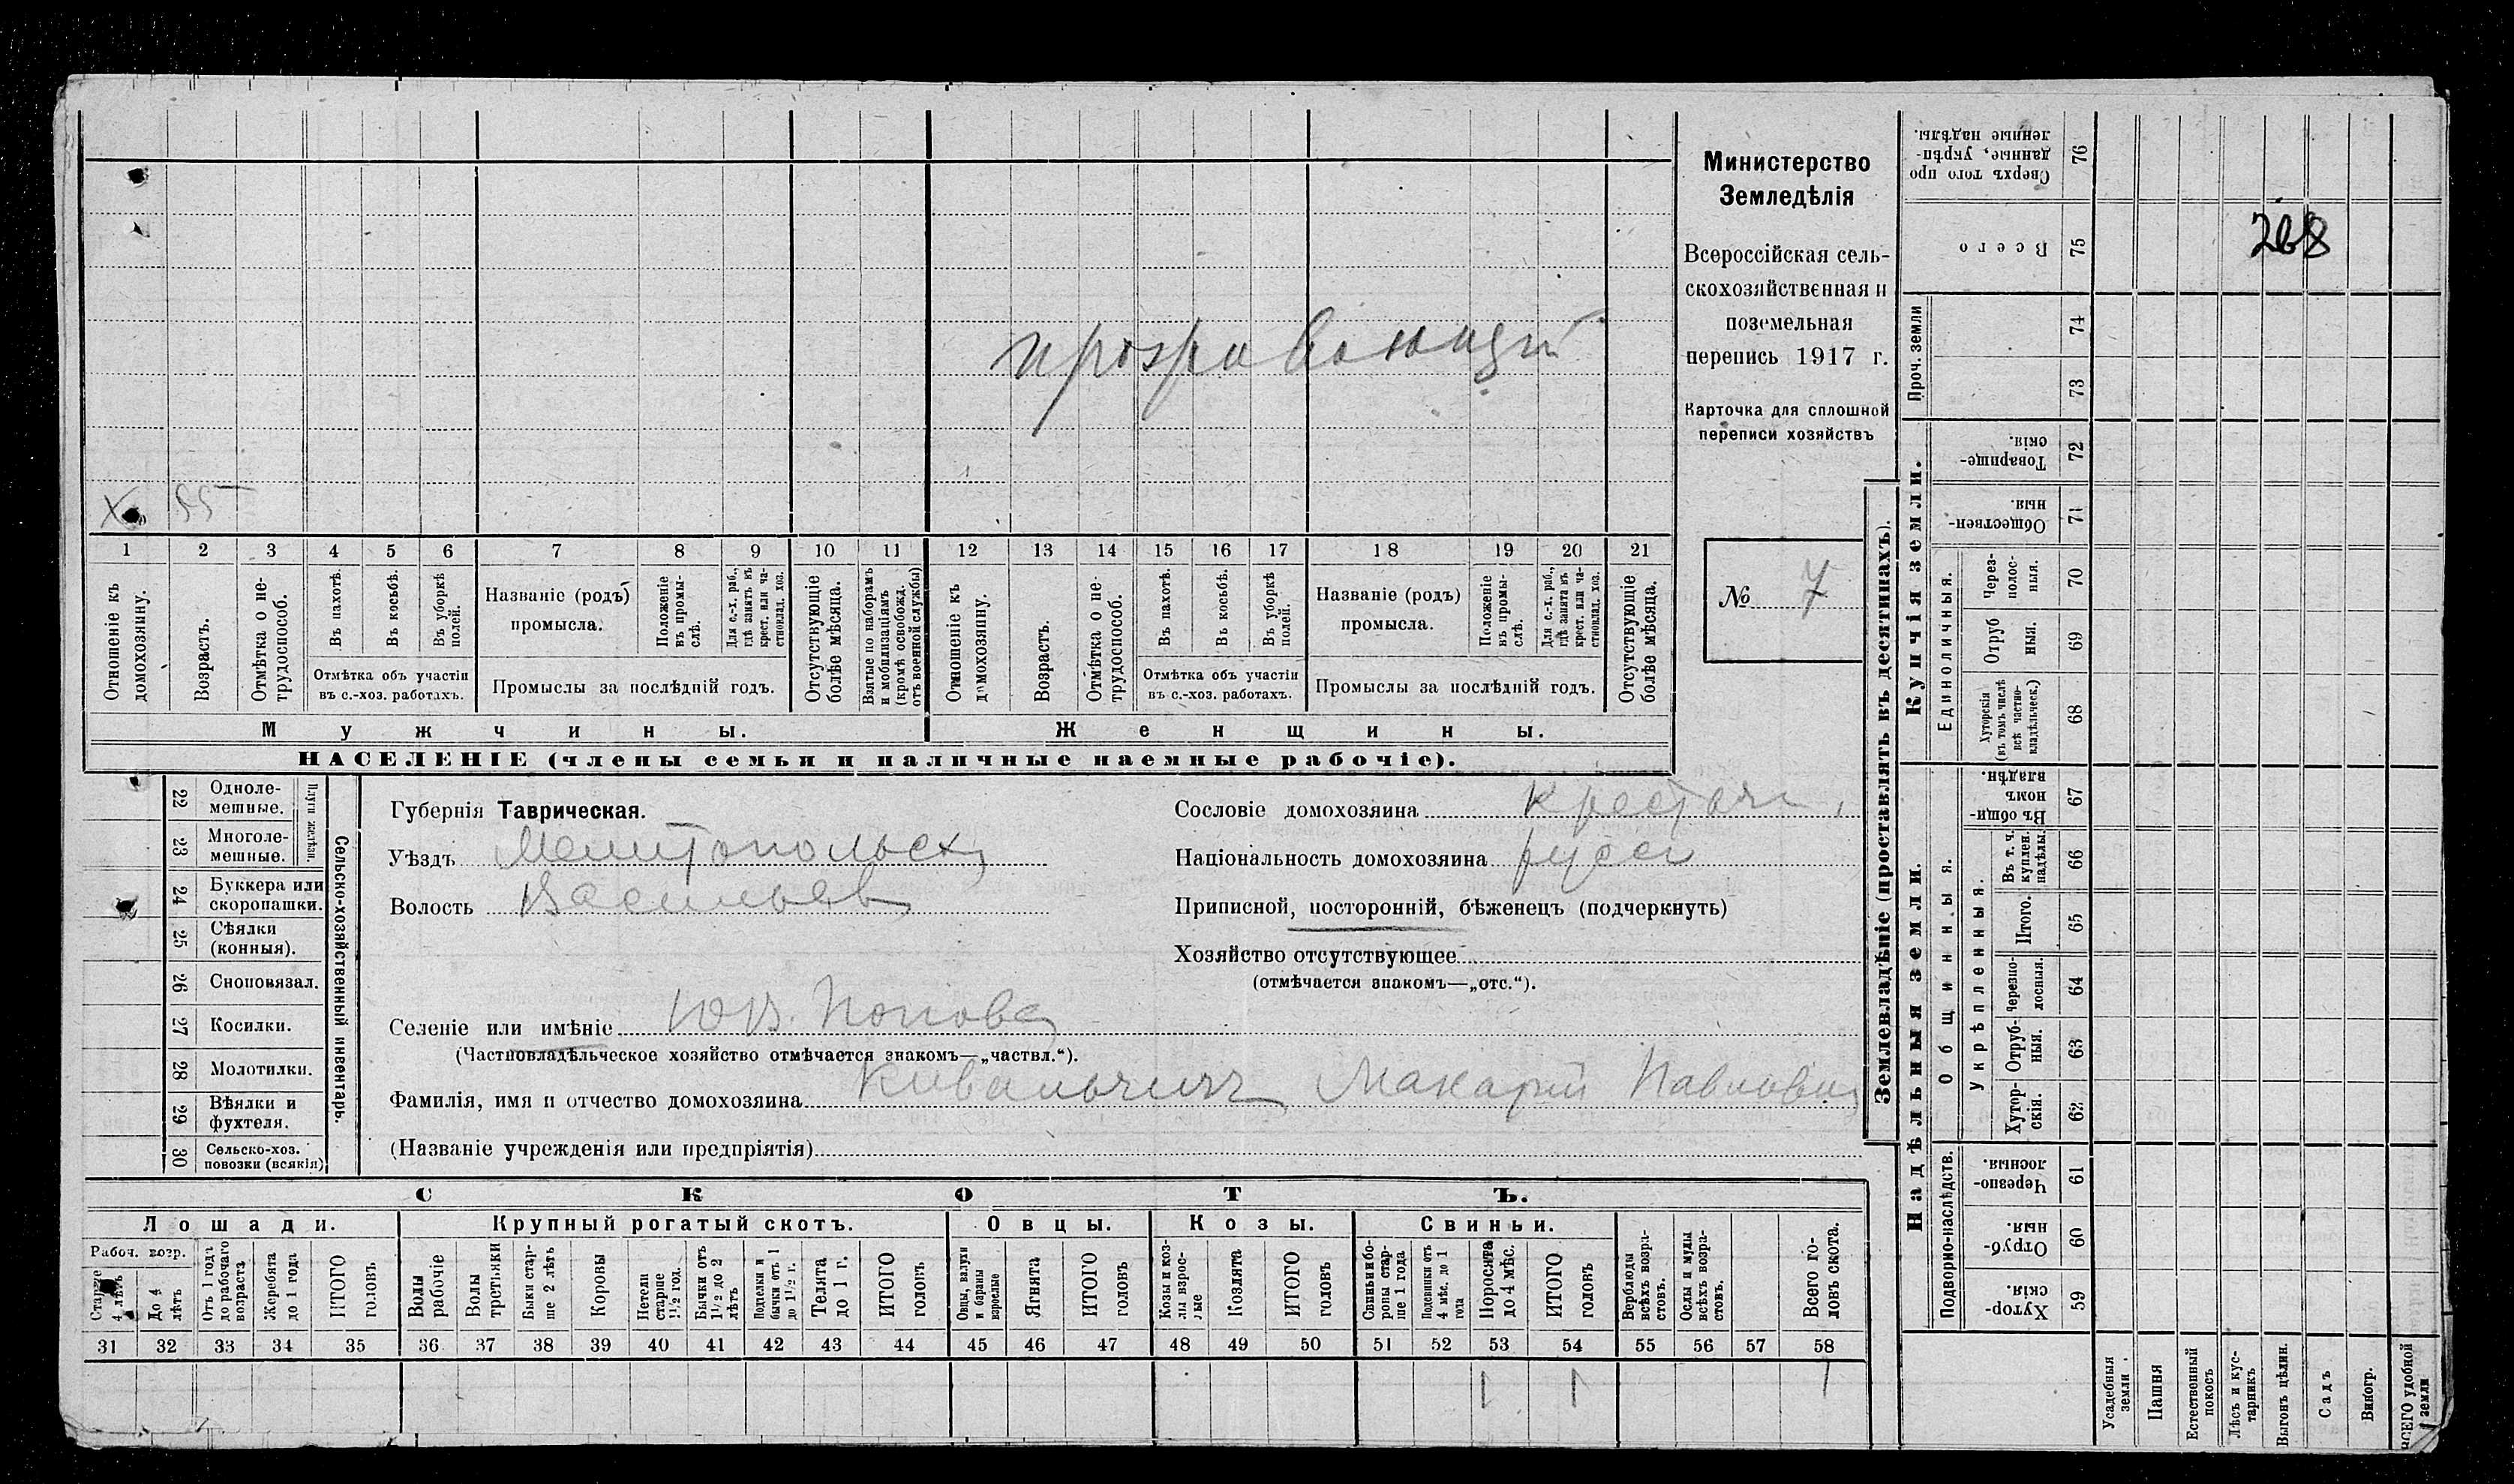 Министерство
Земледѣлія
Всероссійская сель-
скохозяйственная и
поземельная
перепись 1917 г.
Карточка для сплошной
переписи хозяйствъ
№ 7
268
Х 55
1 2 3 4 5 6 7 8 9 10 11 12 13 14 15 16 17 18 19 20 21
Отношеніе къ домохозяину.
Возрастъ.
Отмѣтка о не-трудоспособ.
Въ пахотѣ.
Въ косьбѣ.
Въ уборкѣ полей.
Отмѣтка объ участіи
въ с.-хоз. работахъ.
Названіе (родъ)
промысла.
Положеніе въ промы-слѣ.
Для с.-х. раб., гдѣ занятъ въ крест. или ча-стновлад. хоз.
Промыслы за послѣдній годъ.
Отсутствующіе болѣе мѣсяца.
Взятые по наборамъ и мобилизаціямъ (кромѣ освобожд. отъ военной службы)
Отношеніе къ домохозяину.
Возрастъ.
Отмѣтка о не-трудоспособ.
Въ пахотѣ.
Въ косьбѣ.
Въ уборкѣ полей.
Отмѣтка объ участіи
въ с.-хоз. работахъ.
Названіе (родъ)
промысла.
Положеніе въ промы-слѣ.
Для с.-х. раб., гдѣ занята въ крест. или ча-стновлад. хоз.
Промыслы за послѣдній годъ.
Отсутствующіе болѣе мѣсяца.
Мужчины.
Женщины.
НАСЕЛЕНІЕ (члены семьи и наличные наемные рабочіе).
Сельско-хозяйственный инвентарь.
Плуги желѣзн.
22 Одноле-мешные.
23 Многоле-мешные.
24 Буккера или скоропашки.
25 Сѣялки (конныя).
26 Сноповязал.
27 Косилки.
28 Молотилки.
29 Вѣялки и фухтеля.
30 Сельско-хоз. повозки (всякія)
Губернія Таврическая.
Уѣздъ Мелитопольск
Волость Васильев
Селеніе или имѣніе Юв. Попова
(Частновладѣльческое хозяйство отмѣчается знакомъ—„частвл.“).
Фамилія, имя и отчество домохозяина Макарій Павлович
(Названіе учрежденія или предпріятія)
Сословіе домохозяина крестьян
Національность домохозяина русск
Приписной, посторонній, бѣженецъ (подчеркнуть)
Хозяйство отсутствующее
(отмѣчается знакомъ—„отс.“).
СКОТЪ.
Лошади. Крупный рогатый скотъ. Овцы. Козы. Свиньи.
Рабоч. возр.
Старше 4 лѣтъ
До 4 лѣтъ
Отъ 1 года до рабочаго возраста
Жеребята до 1 года
ИТОГО головъ
Волы рабочіе
Волы третьяки
Быки стар-ше 2 лѣтъ
Коровы
Нетели старше 1½ год.
Бычки отъ 1½ до 2 лѣтъ
Подтелки и бычки отъ 1 до 1½ г.
Телята до 1 г.
ИТОГО головъ
Овцы, валухи и бараны взрослые
Ягнята
ИТОГО головъ
Козы и коз-лы взрос-лые
Козлята
ИТОГО головъ
Свиньи и бо-ровы стар-ше 1 года
Подсвинки отъ 4 мѣс. до 1 года
Поросята до 4 мѣс.
ИТОГО головъ
Верблюды всѣхъ возра-стовъ.
Ослы и мулы всѣхъ возра-стовъ.
Всего го-ловъ скота.
31 32 33 34 35 36 37 38 39 40 41 42 43 44 45 46 47 48 49 50 51 52 53 54 55 56 57 58
1 1 1
Землевладѣніе (проставлять въ десятинахъ).
Купчія земли.
Надѣльныя земли.
Сверхъ того про данные, укрѣп-ленные надѣлы. 76
Всего 75
Проч. земли 74
73
Товарище-скія. 72
Обществен-ныя. 71
Единоличныя.
Через-полос-ныя. 70
Отруб ныя. 69
Хуторскія (въ томъ числѣ всѣ частно-владѣльческ.) 68
Общинныя.
Въ общи-номъ владѣн. 67
Укрѣпленныя.
Въ т. ч. куплен. надѣлы. 66
Итого. 65
Черезпо-лосныя. 64
Отруб-ныя. 63
Хутор-скія. 62
Подворно-наслѣдств.
Черезпо-лосныя. 61
Отруб-ныя. 60
Хутор-скія. 59
Усадебныя земли.
Пашня
Естественный покосъ
Лѣсъ и кус-тарникъ
Выгонъ цѣлин.
Садъ
Виногр.
ВСЕГО удобной земли